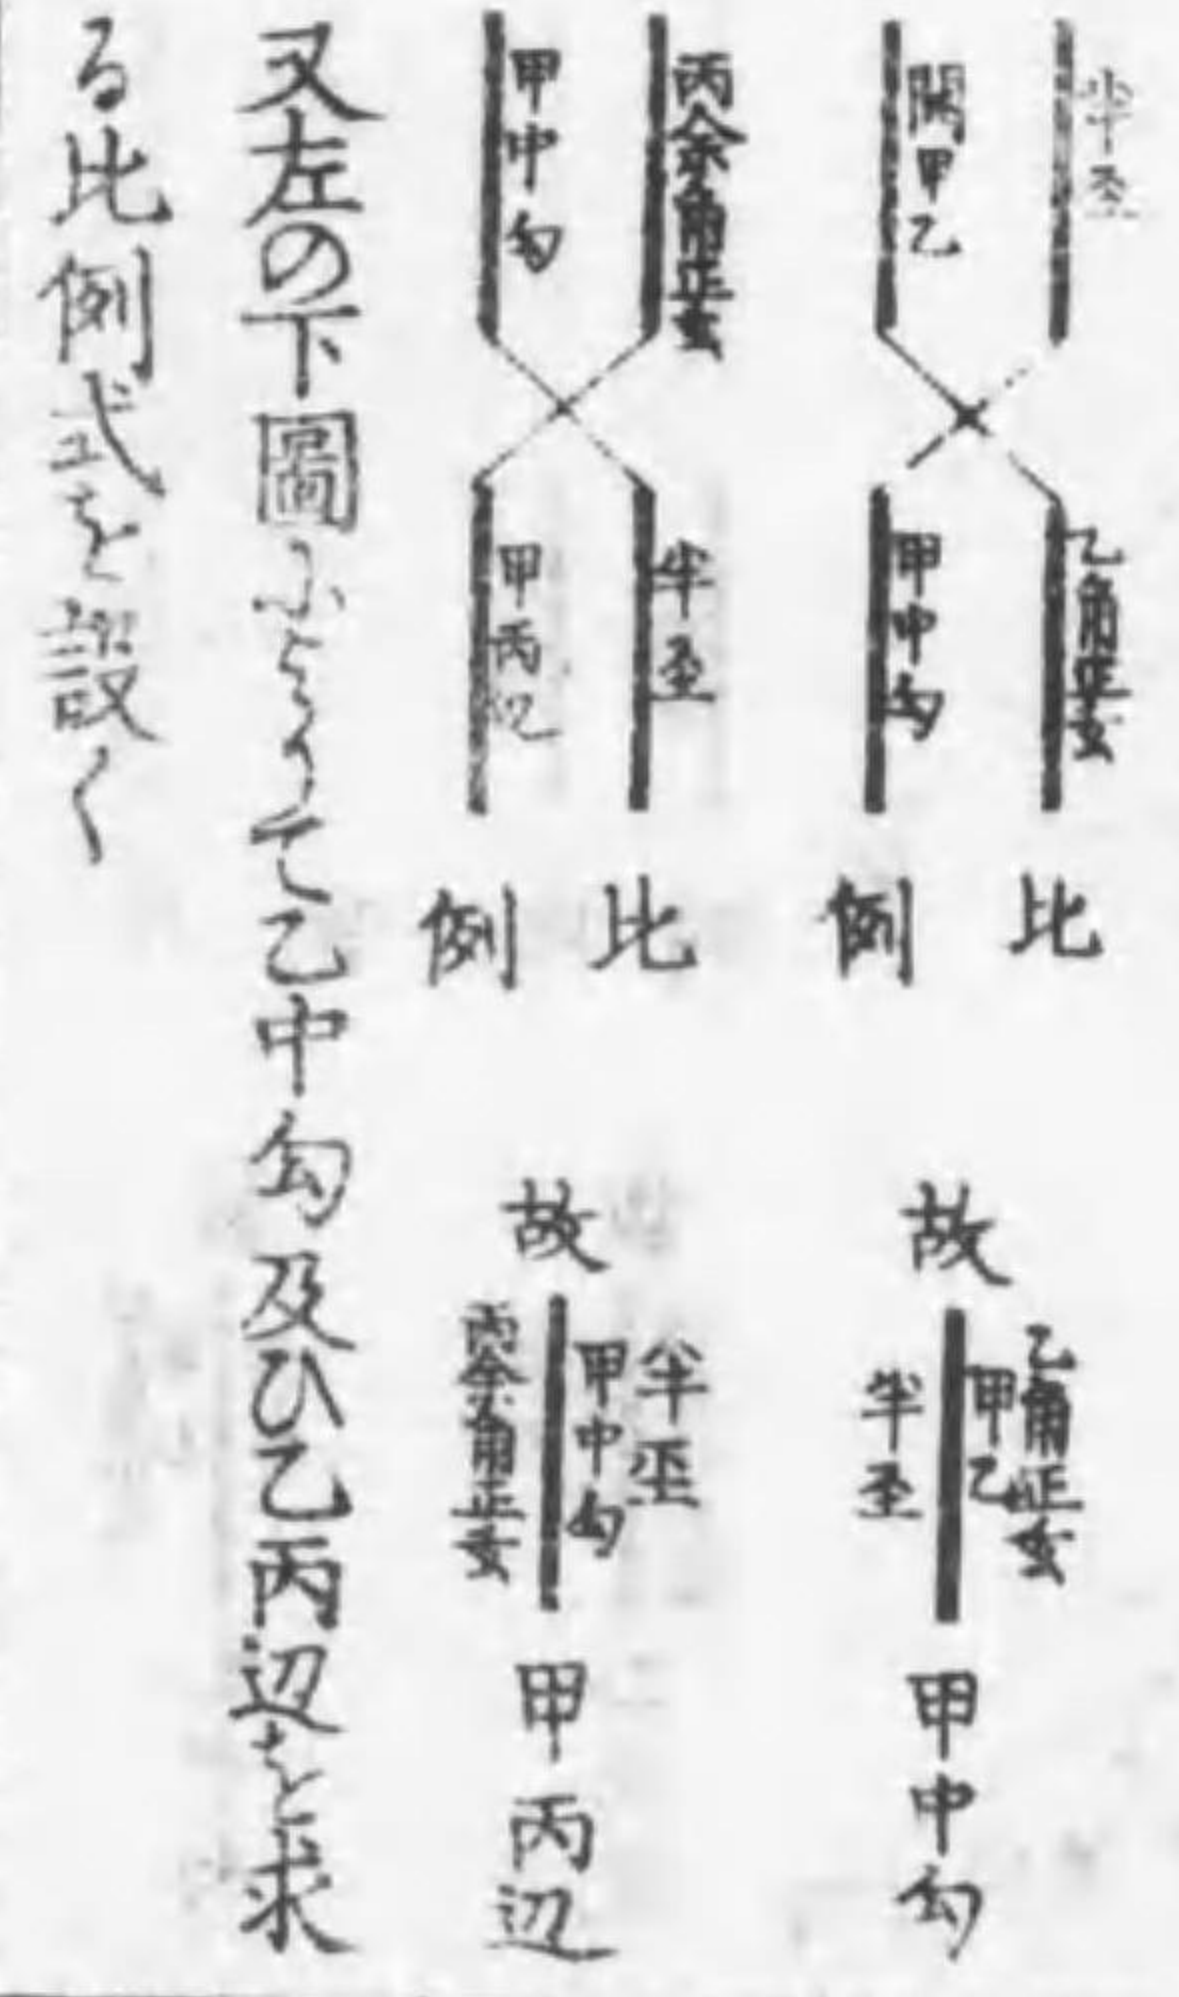 半径
関甲乙
乙角正玄
甲中勾
比
例
故
乙角正玄
甲乙
半径
甲中勾
丙余角正玄
甲中勾
半径
甲丙辺
比
例
故
半径
甲中勾
丙余角正玄
甲丙辺
又左の下圖によりて乙中勾及ひ乙丙辺を求
る比例式を設く